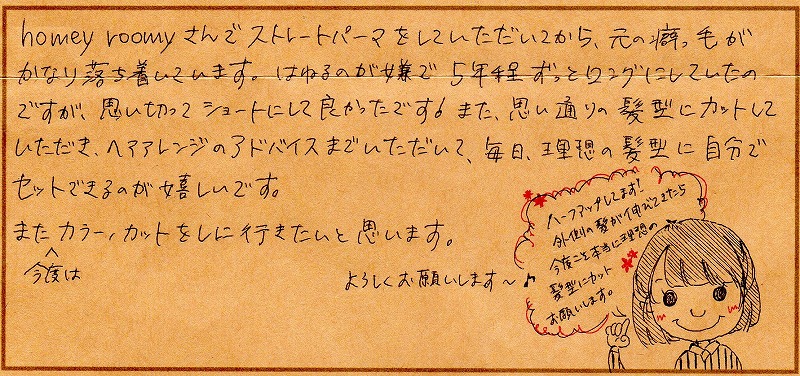 homey roomyさんでストレートパーマをしていただいてから、元の癖っ毛が
かなり落ち着いています。はねるのが嫌で5年程ずっとロングにしていたの
ですが、思い切ってショートにして良かったです！また、思い通りの髪型にカットして
いただき、ヘアアレンジのアドバイスまでいただいて、毎日、理想の髪型に自分で
セットできるのが嬉しいです。
また今度はカラー、カットをしに行きたいと思います。
よろしくお願いします〜♪
ハーフアップしてます！
外側の髪が伸びてきたら
今度こそ本当に理想の
髪型にカット
お願いします。